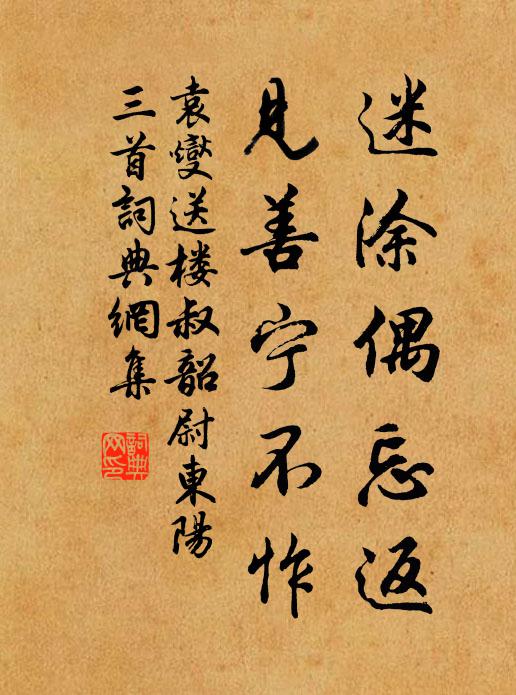 迷涂偶忘返
見善宁不怍
袁燮送楼叔韶尉東陽
三首詞典網集
詞典
网印